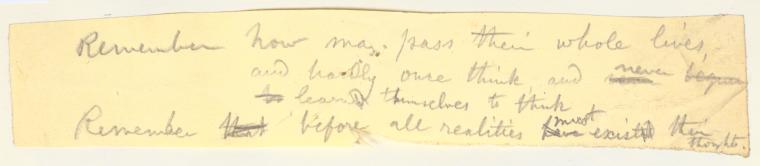 Remember how many pass their whole lives
and hardly once think and never
learned themselves to think
Remember before all realities must exist their
thoughts.